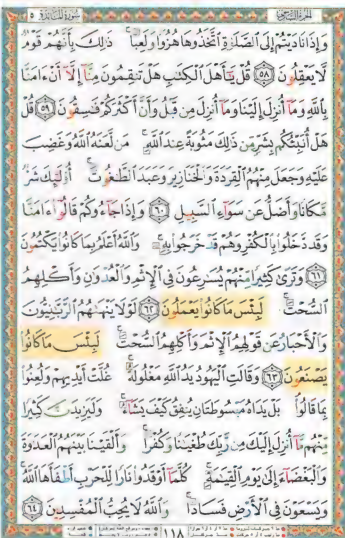 الجزء السادس سورة المائدة ٥
وَإِذَا نَادَيْتُمْ إِلَى الصَّلَوٰةِ اتَّخَذُوهَا هُزُوًا وَلَعِبًا ذَٰلِكَ بِأَنَّهُمْ قَوْمٌ
لَّا يَعْقِلُونَ ٥٨ قُلْ يَٰٓأَهْلَ الْكِتَٰبِ هَلْ تَنقِمُونَ مِنَّآ إِلَّآ أَنْ ءَامَنَّا
بِاللَّهِ وَمَآ أُنزِلَ إِلَيْنَا وَمَآ أُنزِلَ مِن قَبْلُ وَأَنَّ أَكْثَرَكُمْ فَٰسِقُونَ ٥٩ قُلْ
هَلْ أُنَبِّئُكُم بِشَرٍّ مِّن ذَٰلِكَ مَثُوبَةً عِندَ اللَّهِ مَن لَّعَنَهُ اللَّهُ وَغَضِبَ
عَلَيْهِ وَجَعَلَ مِنْهُمُ الْقِرَدَةَ وَالْخَنَازِيرَ وَعَبَدَ الطَّٰغُوتَ أُوْلَٰٓئِكَ شَرٌّ
مَّكَانًا وَأَضَلُّ عَن سَوَآءِ السَّبِيلِ ٦٠ وَإِذَا جَآءُوكُمْ قَالُوٓاْ ءَامَنَّا
وَقَد دَّخَلُواْ بِالْكُفْرِ وَهُمْ قَدْ خَرَجُواْ بِهِۦ وَاللَّهُ أَعْلَمُ بِمَا كَانُواْ يَكْتُمُونَ
٦١ وَتَرَىٰ كَثِيرًا مِّنْهُمْ يُسَٰرِعُونَ فِى الْإِثْمِ وَالْعُدْوَٰنِ وَأَكْلِهِمُ
السُّحْتَ لَبِئْسَ مَا كَانُواْ يَعْمَلُونَ ٦٢ لَوْلَا يَنْهَىٰهُمُ الرَّبَّٰنِيُّونَ
وَالْأَحْبَارُ عَن قَوْلِهِمُ الْإِثْمَ وَأَكْلِهِمُ السُّحْتَ لَبِئْسَ مَا كَانُواْ
يَصْنَعُونَ ٦٣ وَقَالَتِ الْيَهُودُ يَدُ اللَّهِ مَغْلُولَةٌ غُلَّتْ أَيْدِيهِمْ وَلُعِنُواْ
بِمَا قَالُواْ بَلْ يَدَاهُ مَبْسُوطَتَانِ يُنفِقُ كَيْفَ يَشَآءُ وَلَيَزِيدَنَّ كَثِيرًا
مِّنْهُم مَّآ أُنزِلَ إِلَيْكَ مِن رَّبِّكَ طُغْيَٰنًا وَكُفْرًا وَأَلْقَيْنَا بَيْنَهُمُ الْعَدَٰوَةَ
وَالْبَغْضَآءَ إِلَىٰ يَوْمِ الْقِيَٰمَةِ كُلَّمَآ أَوْقَدُواْ نَارًا لِّلْحَرْبِ أَطْفَأَهَا اللَّهُ
وَيَسْعَوْنَ فِى الْأَرْضِ فَسَادًا وَاللَّهُ لَا يُحِبُّ الْمُفْسِدِينَ ٦٤
١١٨